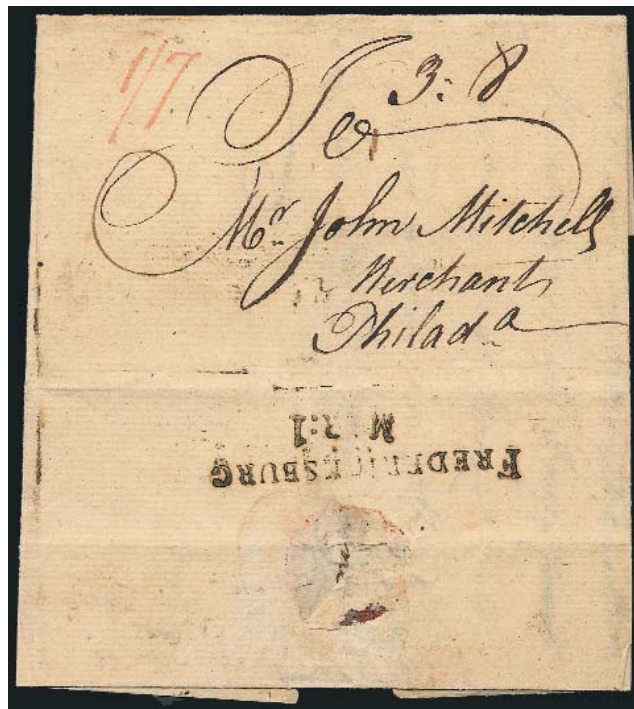 1/7
3: 8
To
Mr. John Mitchell
Merchant
Philada
FREDERICKSBURG
MAR:1